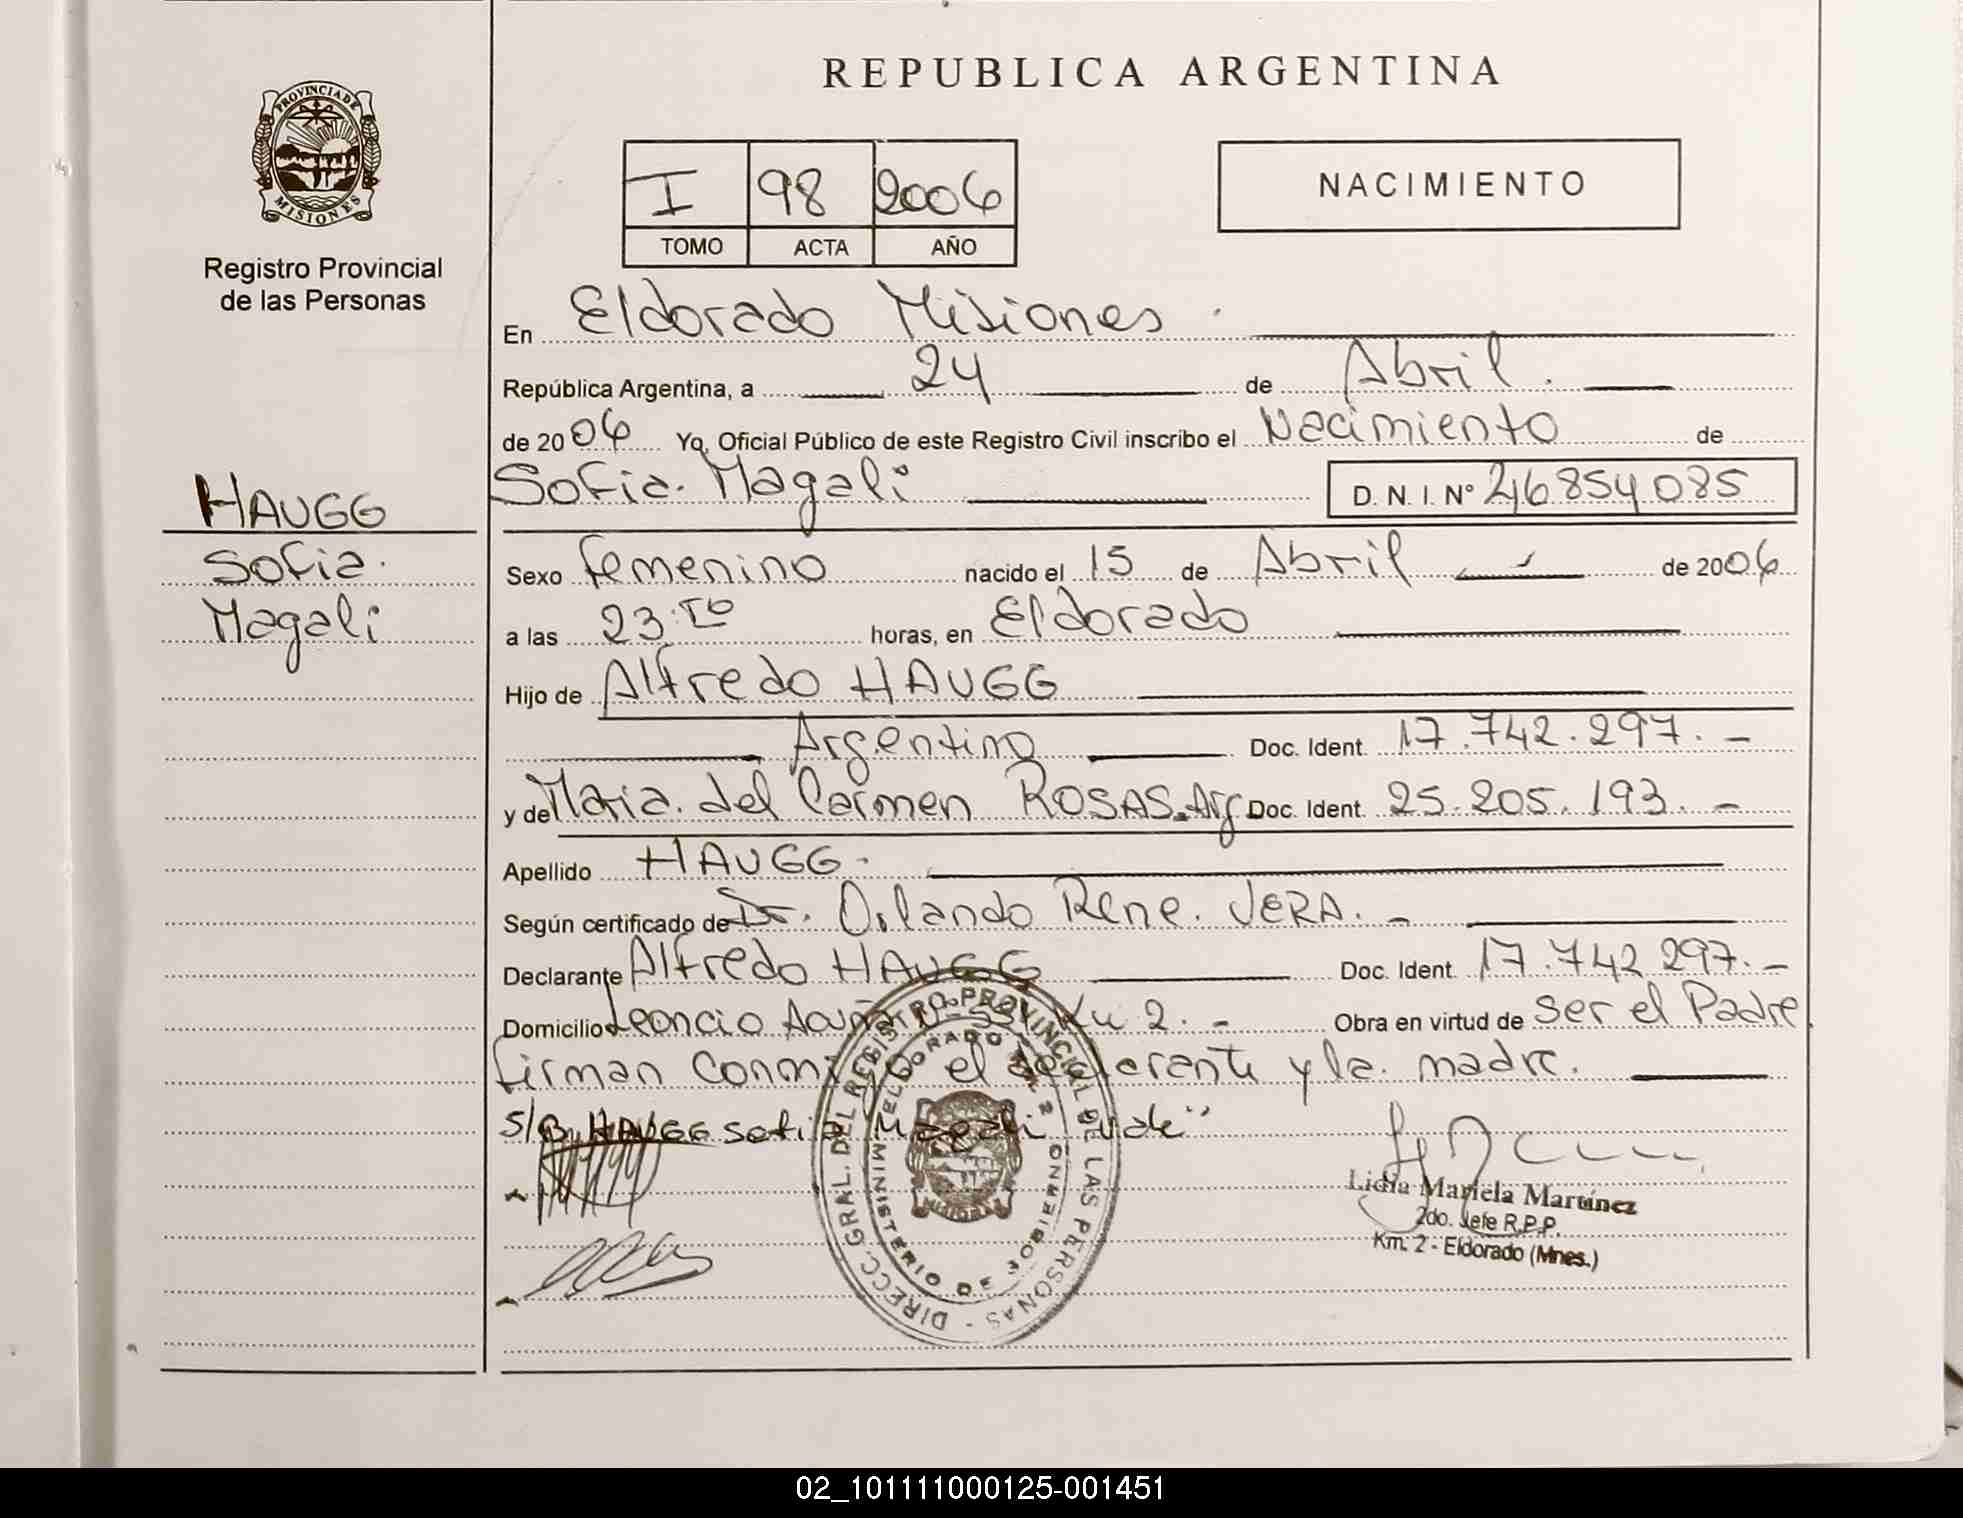 REPUBLICA ARGENTINA
PROVINCIA DE
MISIONES
Registro Provincial
de las Personas
I 98 2006
TOMO ACTA AÑO
NACIMIENTO
En Eldorado Misiones.
República Argentina, a 24 de Abril.
de 2006 Yo, Oficial Público de este Registro Civil inscribo el Nacimiento de
Sofia. Magali D. N. I. Nº 46854085
HAUGG
Sofia.
Magali
Sexo Femenino nacido el 15 de Abril de 2006
a las 23: horas, en Eldorado
Hijo de Alfredo HAUGG
Argentino Doc. Ident. 17.742.297.-
y de Maria. del Carmen ROSAS. Arg Doc. Ident. 25.205.193.-
Apellido HAUGG.
Según certificado de Dr. Orlando Rene. VERA.-
Declarante Alfredo HAUGG Doc. Ident. 17.742 297.-
Domicilio Leoncio 2.- Obra en virtud de Ser el Padre
firman Conmigo el declarante y la. madre.
S/B. HAUGG Sofia Magali vale"
DIRECC. GRAL. DEL REGISTRO PROVINCIAL DE LAS PERSONAS -
MINISTERIO DE GOBIERNO
ELDORADO KM. 2
MISIONES
Lidia Mariela Martínez
2do. Jefe R.P.P.
Km. 2 - Eldorado (Mnes.)
02_101111000125-001451